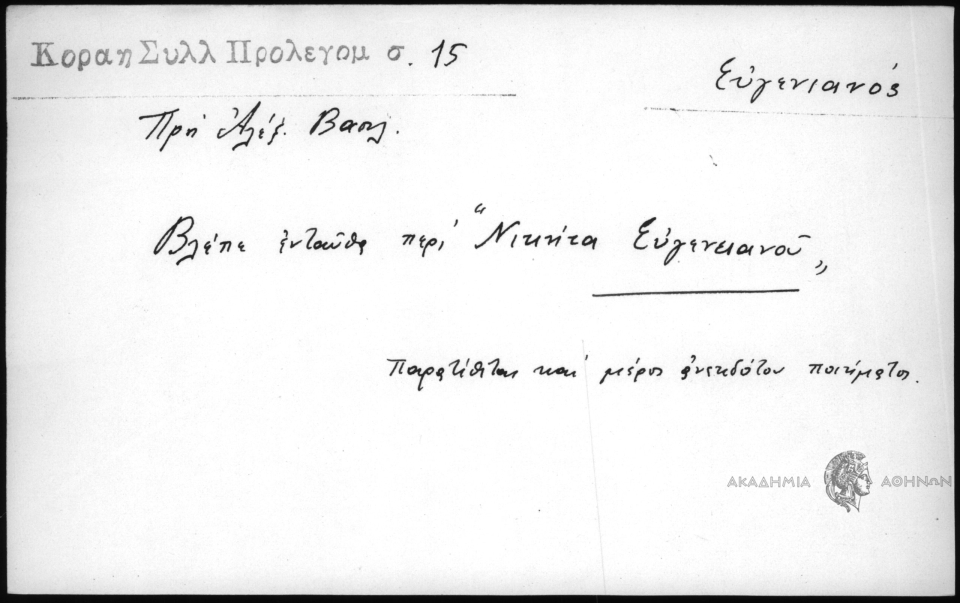 Κοραη Συλλ Προλεγομ σ. 15
Εὐγενιανός
Πρὸς Ἀλέξ. Βασιλ.
Βλέπε ἐνταῦθα περὶ "Νικήτα Εὐγενειανοῦ„
Παρατίθεται καὶ μέρος ἀνεκδότου ποιήματος.
ΑΚΑΔΗΜΙΑ ΑΘΗΝΩΝ